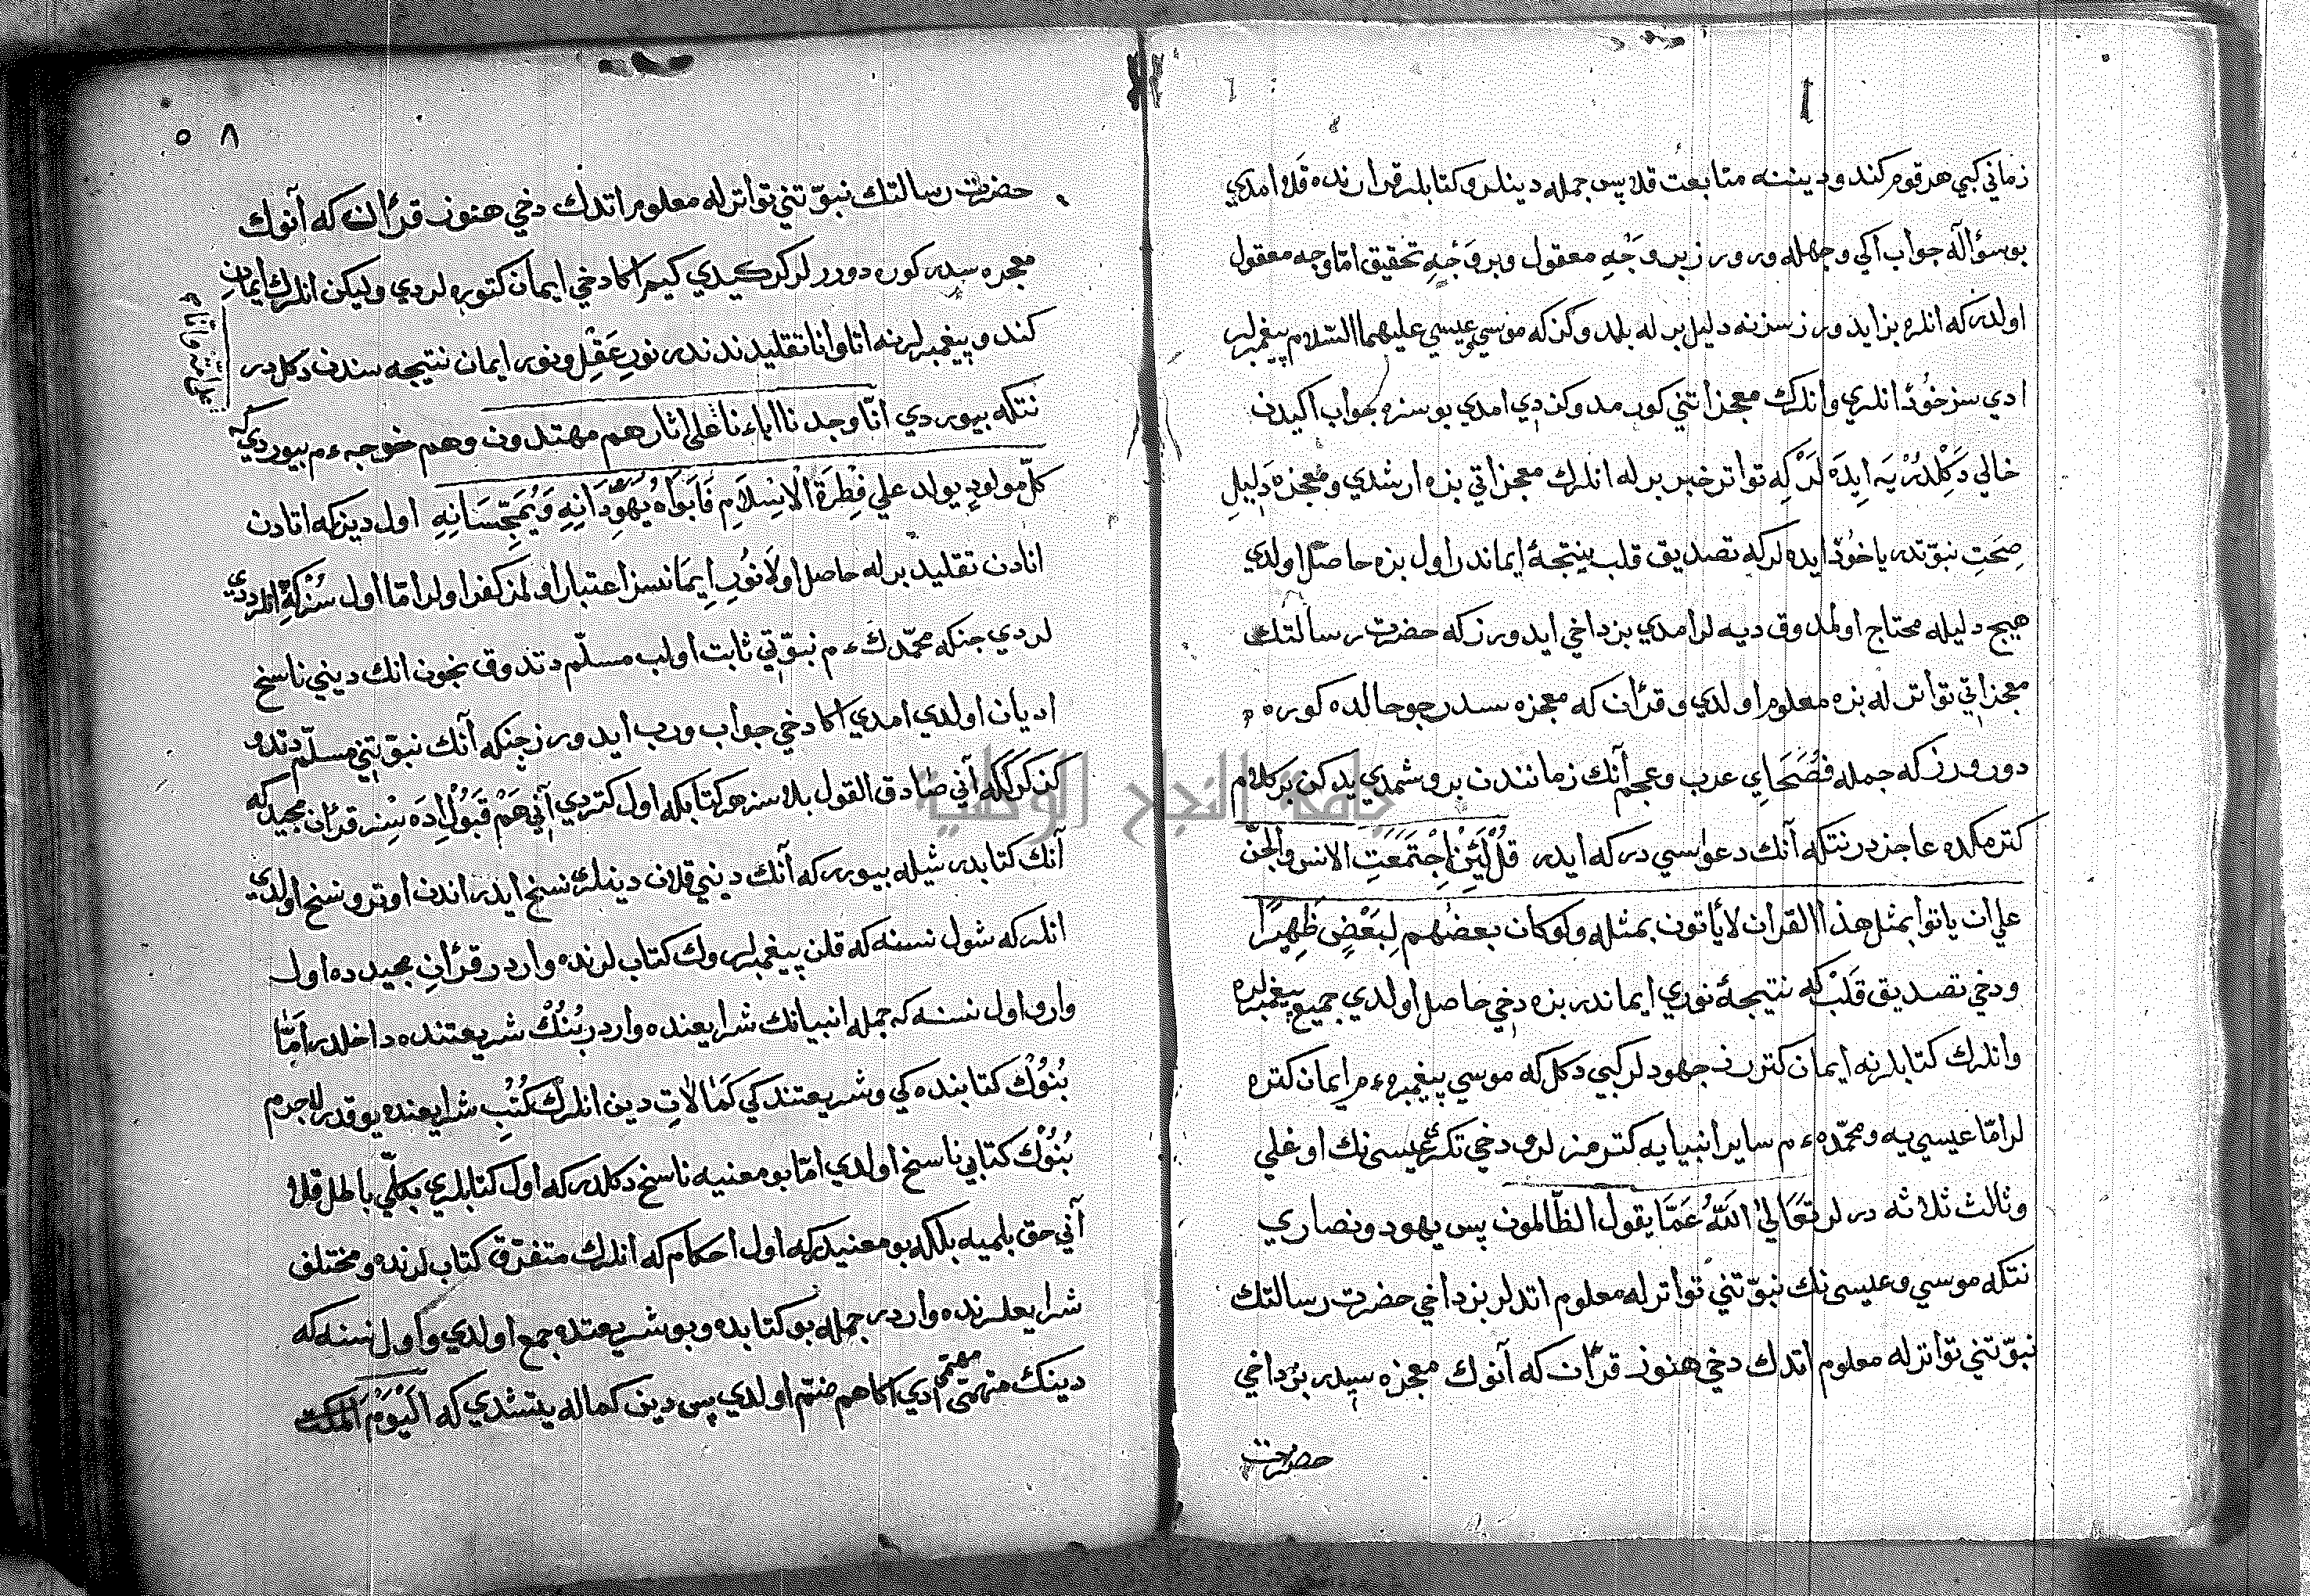 زماني كبي هر قوم كندو ديننه متابعت قلا پس جمله دينلر و كتابلر قرارنده قلا امدي
بو سؤاله جواب اكي وجهله ورورز بر وَجْهِ معقول و بر وَجْهِ تحقيق امّا وجه معقول
اولدر كه انلره بز ايدورز سزنه دليل بر له بلدوكز كه موسي و عيسي عليهما السّلام پيغمبرلر
ادي سز خُوْذ انلري و انلرك معجزاتني كورمدوكز دي امدي بو سزه جواب اكيدن
خالي دَكِلْدُرْ يَه ايِدَه لَرْكِه تواتر خبر بر له انلرك معجزاتي بزه ارشدي و معجزه دَلِيلِ
صِحَتِ نبوّتدر يا خُوْذ ايده لركه تصديق قلب نيتجۀ ايماندر اول بزه حاصل اولدي
هيچ دليله محتاج اولمدوق ديه لر امدي بز داخي ايدورز كه حضرت رسالتك
معجزاتي تواتر له بزه معلوم اولدي و قرٔان كه معجزه سدر بو حالده كوره
دورورز كه جمله فُصَحَاي عرب و عجم آنك زمانندن برو شمدي يدكن بر كلام
كترمكده عاجزدر نتكه آنك دعواسي دركه ايدر قُلْ لَئِنْ اِجْتَمَعَتِ الانس والجنّ
علي ان ياتوا بمثل هذا القرآن لا يأتون بمثله و لو كان بعضهم لِبَعْضٍ ظَهِيرًا
و دخي تصديق قَلْبْ كه نتيجۀ نوري ايماندر بزه دخي حاصل اولدي جميع پيغمبرلره
و انلرك كتابلرنه ايمان كتررز جهودلر كبي دكل كه موسي پيغمبره ءم ايمان كتره
لر امّا عيسي يه و محمّده ءم ساير انبيايه كترمزلر و دخي تكري عيسى نك اوغلي
و ثالث ثلاثه درلر تَعَالَي اللّهُ عَمَّا يقول الظّالمون پس يهود و نصاري
نتكه موسي و عيسى نك نبوّتني تواتر له معلوم اتدلر بز داخي حضرت رسالتك
نبوّتني تواتر له معلوم اتدك دخي هنوز قرٔان كه آنوك معجزه سيدر بز داخي
حضرت
٥٨
حضرت رسالتك نبوّتني تواتر له معلوم اتدك دخي هنوز قرٔان كه آنوك
معجزه سدر كوره دوررلر كركيدي كيم اكا دخي ايمان كتوره لردي وليكن انلرك ايمان
كندو پيغمبرلرنه اتا و انا تقليدندندر نورِ عَقْلِ و نور ايمان نتيجه سندن دكلدر
نتكه بيوردي انّا وجدنا اباءنا على اثارهم مهتدون و هم خوجه ءم بيوردي كه
كلّ مولودٍ يولد علي فِطْرَةَ الْاِسْلَامِ فَاَبَوَاهُ يُهَوِّدَانِهِ وَ يُمَجِّسَانِهِ اول دينكه اتادن
انادن تقليد بر له حاصل اولا نُورِ اِيمَانسز اعتبار اولمز كفر اولر امّا اول سُزْكه انلر ددي
لردي چنكه محمّدك ءم نبوّتي ثابت اولب مسلّم دتدوق نچون انك ديني ناسخ
اديان اولدي امدي اكا دخي جواب ورب ايدورز چنكه آنك نبوّتني مسلّم دتدو
كز كرككه آني صادق القول بلاسز هر كتابكه اول كتردي آني هَمْ قَبُولْ اِدَه سِز قرٔان مجيد كه
آنك كتابدر شيله بيوررر كه آنك ديني قلان دينلري نسخ ايدر اندن اوترو نسخ اولدي
انلر كه شول نسنه كه قلن پيغمبرلروك كتاب لرنده واردر قرٔانِ مجيد ده اول
وار و اول نسنه كه جمله انبيانك شرايعنده واردر بُنُكْ شريعتنده داخلدر امّا
بُنُوكْ كتابنده كي و شريعتندكي كَمَالَاتِ دين انلرك كُتُبِ شرايعنده يوقدر لاجرم
بُنُوكْ كتابي ناسخ اولدي امّا بو معنيه ناسخ دكلدر كه اول كتابلري بكلّي باطل قلا
آني حق بلميه بلكه بو معنيدركه اول احكام كه انلرك متفرّق كتاب لرنده و مختلف
شرايعلرنده واردر جمله بو كتابده و بو شريعتده جمع اولدي و اول نسنه كه
دينك متهمّى ادي اكا هم ضمّ اولدي پس دين كماله يتشدي كه اَلْيَوْمَ اَكْمَلْتُ
مهمّى